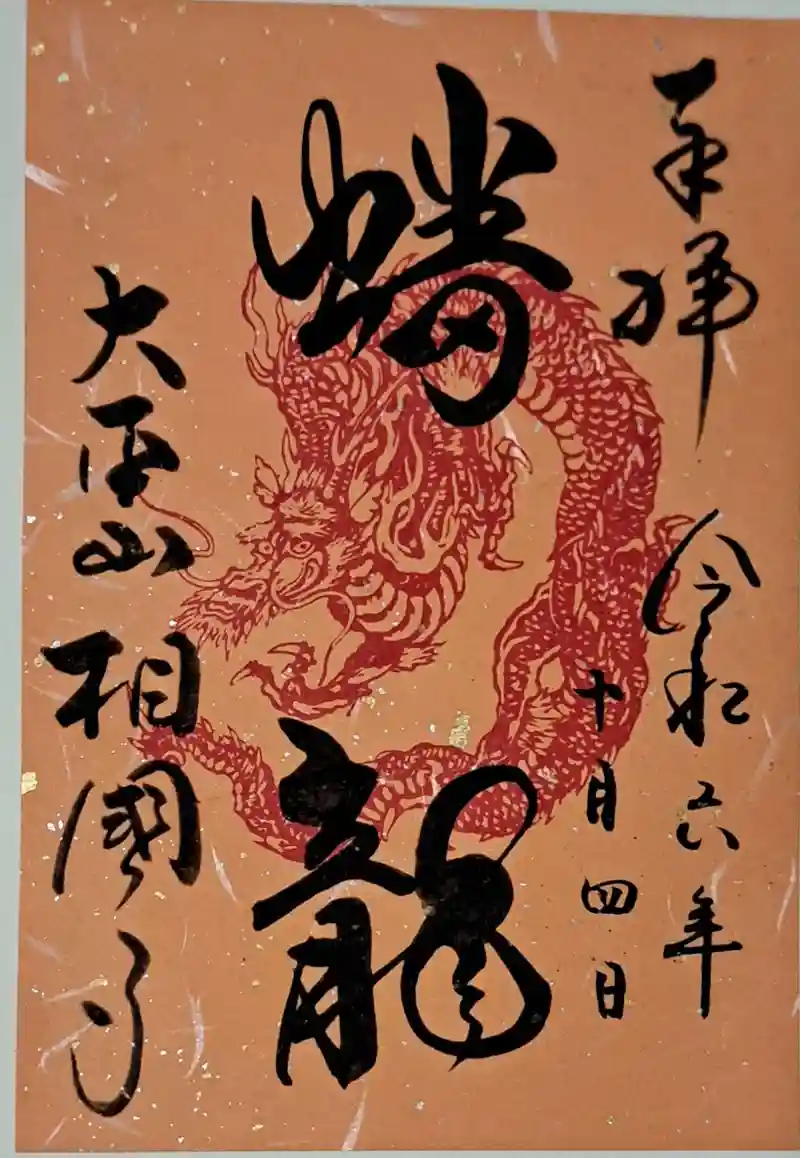 奉拝
令和六年
十月四日
蟠龍
大平山
相國寺